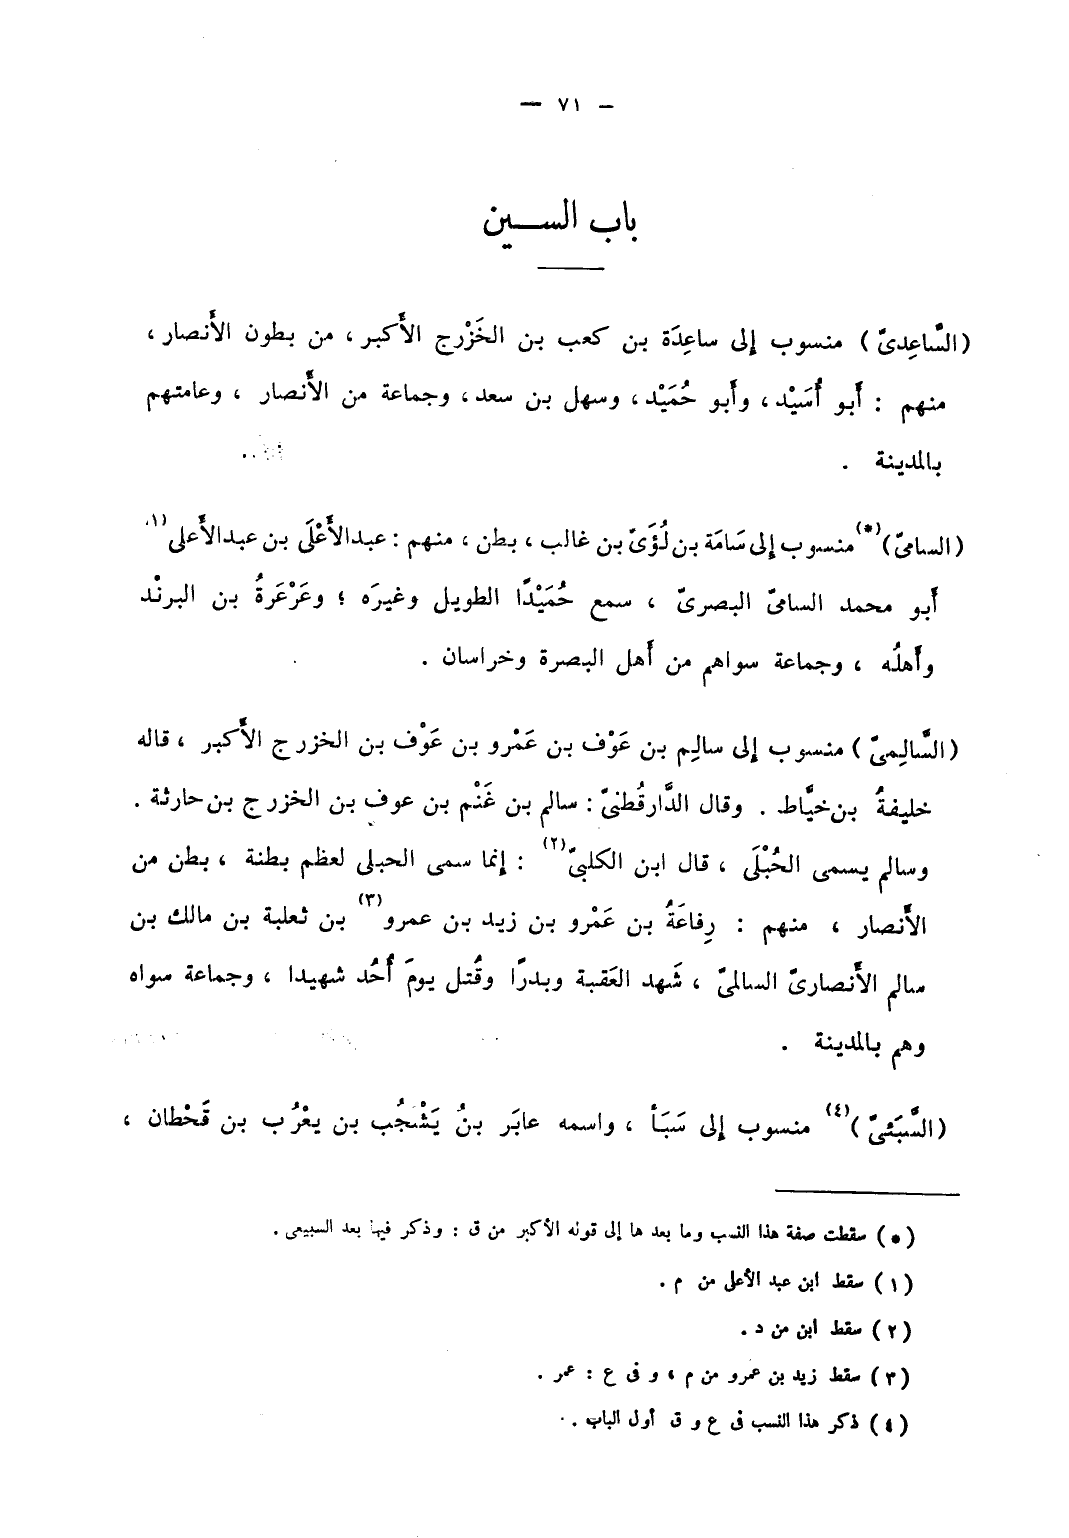 — ٧١ —
باب الســين
(السَّاعِدىّ) منسوب إلى ساعِدَة بن كعب بن الخَزْرج الأَكبر، من بطون الأَنصار،
منهم : أَبو أُسَيْد، وأَبو حُمَيْد، وسهل بن سعد، وجماعة من الأَنصار ، وعامتهم
بالمدينة .
(السامىّ)(*) منسوب إلى سَامَة بن لُؤَىّ بن غالب ، بطن ، منهم : عبدالأَعْلَى بن عبدالأَعلى(١)
أَبو محمد السامىّ البصرىّ ، سمع حُمَيْدًا الطويل وغيرَه ؛ وعَرْعَرةُ بن البرنْد
وأَهلُه ، وجماعة سواهم من أَهل البصرة وخراسان .
(السَّالِمىّ) منسوب إلى سالِم بن عَوْف بن عَمْرو بن عَوْف بن الخزرج الأَكبر ، قاله
خليفةُ بن خيَّاط . وقال الدَّارقُطنىّ : سالم بن غَنْم بن عوف بن الخزرج بن حارثة .
وسالم يسمى الحُبْلَى ، قال ابن الكلبىّ(٢) : إنما سمى الحبلى لعظم بطنة ، بطن من
الأَنصار ، منهم : رِفاعَةُ بن عَمْرو بن زيد بن عمرو(٣) بن ثعلبة بن مالك بن
سالم الأَنصارىّ السالمىّ ، شَهد العَقبة وبدرًا وقُتل يومَ أُحُد شهيدا ، وجماعة سواه
وهم بالمدينة .
(السَّبَئىّ)(٤) منسوب إلى سَبَأ ، واسمه عابَر بنُ يَشْجُب بن يعْرُب بن قَحْطان ،
(*) سقطت صفة هذا النسب وما بعد ها إلى قوله الأكبر من ق : وذكر فيها بعد السبيعى .
(١) سقط ابن عبد الأعلى من م .
(٢) سقط ابن من د .
(٣) سقط زيد بن عمرو من م ، و فى ع : عمر .
(٤) ذكر هذا النسب فى ع و ق أول الباب .